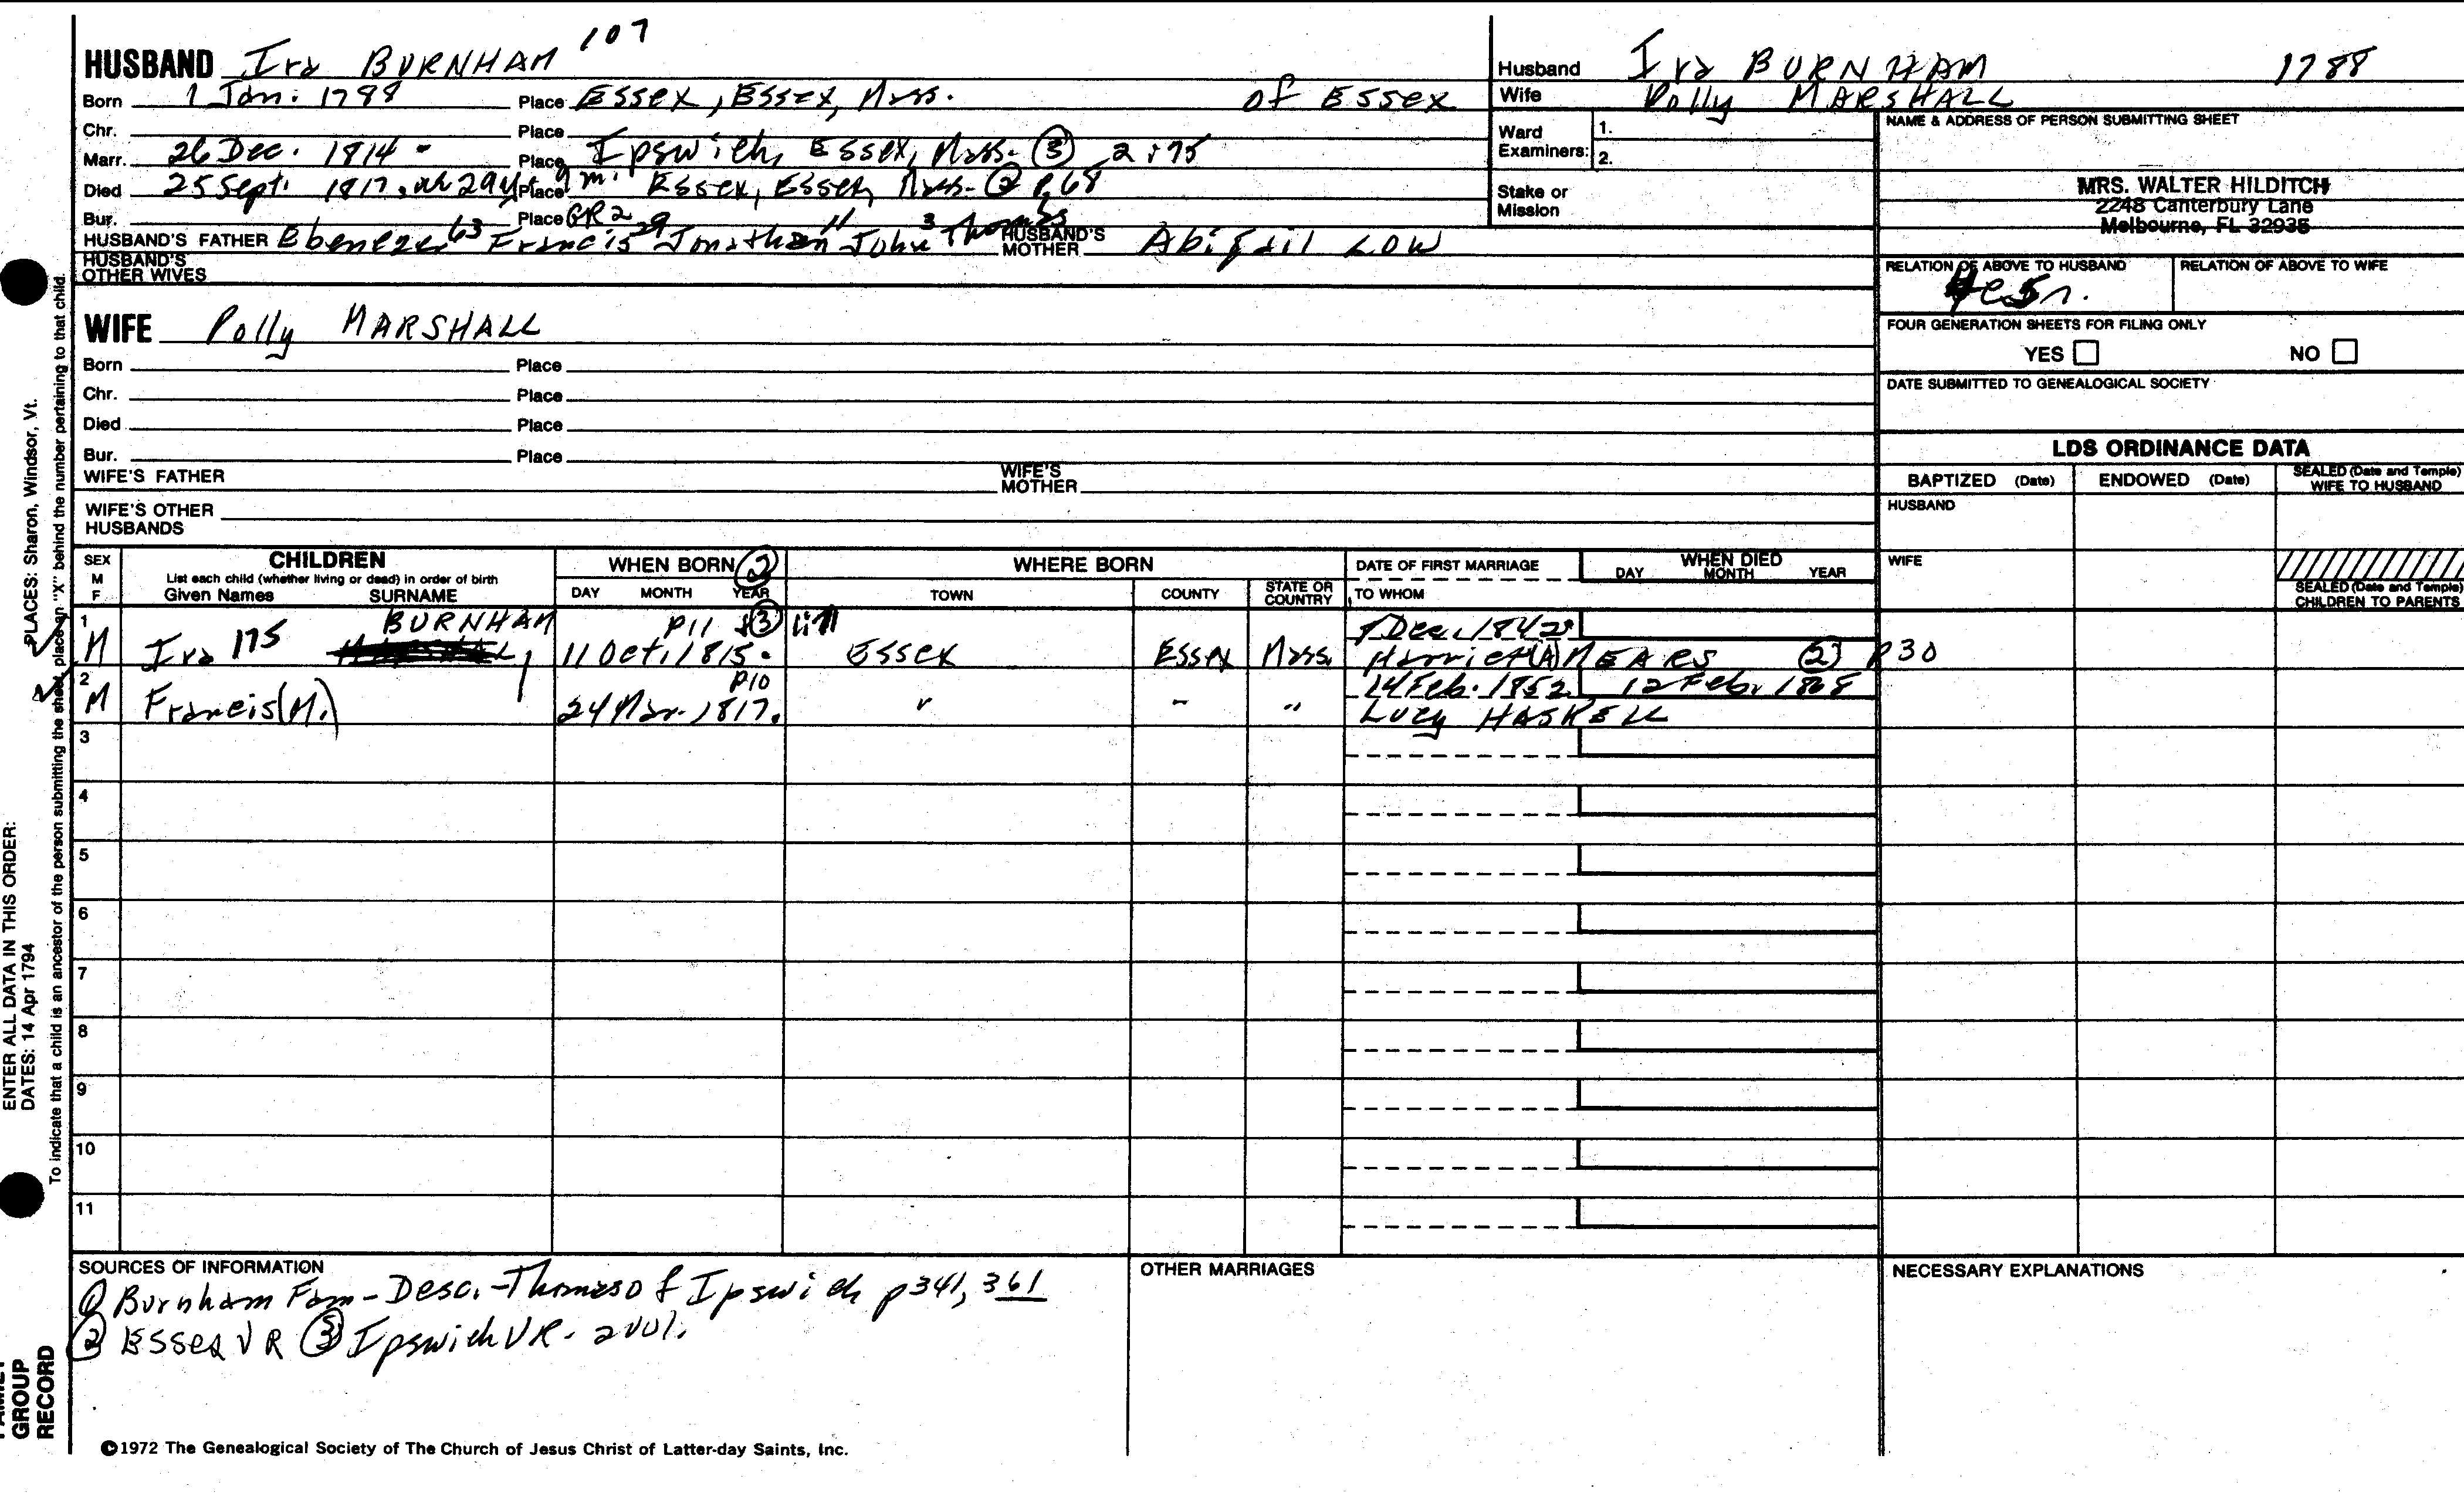 HUSBAND Ira BURNHAM 107
Born 1 Jan. 1788 Place Essex, Essex, Mass. of Essex
Chr. Place
Marr. 26 Dec. 1814 Place Ipswich, Essex, Mass. (3) 2:75
Died 25 Sept. 1817, ae 29y 9m. Place Essex, Essex, Mass. (2) p.68
Bur. Place GR2
HUSBAND'S FATHER Ebenezer 63 Francis 29 Jonathan 11 John 3 Thomas HUSBAND'S MOTHER Abigail LOW
HUSBAND'S OTHER WIVES
Husband Ira BURNHAM 1788
Wife Polly MARSHALL
Ward Examiners: 1. 2.
Stake or Mission
NAME & ADDRESS OF PERSON SUBMITTING SHEET
MRS. WALTER HILDITCH
2248 Canterbury Lane
Melbourne, FL 32935
RELATION OF ABOVE TO HUSBAND RELATION OF ABOVE TO WIFE
FOUR GENERATION SHEETS FOR FILING ONLY
YES NO
DATE SUBMITTED TO GENEALOGICAL SOCIETY
WIFE Polly MARSHALL
Born Place
Chr. Place
Died Place
Bur. Place
WIFE'S FATHER WIFE'S MOTHER
WIFE'S OTHER HUSBANDS
LDS ORDINANCE DATA
BAPTIZED (Date) ENDOWED (Date) SEALED (Date and Temple) WIFE TO HUSBAND
HUSBAND
WIFE
SEALED (Date and Temple) CHILDREN TO PARENTS
SEX M F
CHILDREN
List each child (whether living or dead) in order of birth
Given Names SURNAME
WHEN BORN (2)
DAY MONTH YEAR
WHERE BORN
TOWN COUNTY STATE OR COUNTRY
DATE OF FIRST MARRIAGE
TO WHOM
WHEN DIED
DAY MONTH YEAR
1 BURNHAM p11 (3)
M Ira 175 11 Oct. 1815. Essex Essex Mass. Dec. 1842
Harriet (A) MEARS (2) p30
2 p10 14 Feb. 1852 12 Feb. 1868
M Francis (M.) 24 Mar. 1817. " " " Lucy HASKELL
3
4
5
6
7
8
9
10
11
SOURCES OF INFORMATION
(1) Burnham Fam - Desc. - Thomas of Ipswich p341, 361
(2) Essex VR (3) Ipswich VR. 2 vol.
OTHER MARRIAGES
NECESSARY EXPLANATIONS
©1972 The Genealogical Society of The Church of Jesus Christ of Latter-day Saints, Inc.
ENTER ALL DATA IN THIS ORDER:
DATES: 14 Apr 1794
PLACES: Sharon, Windsor, Vt.
To indicate that a child is an ancestor of the person submitting the sheet, place an "X" behind the number pertaining to that child.
GROUP
RECORD